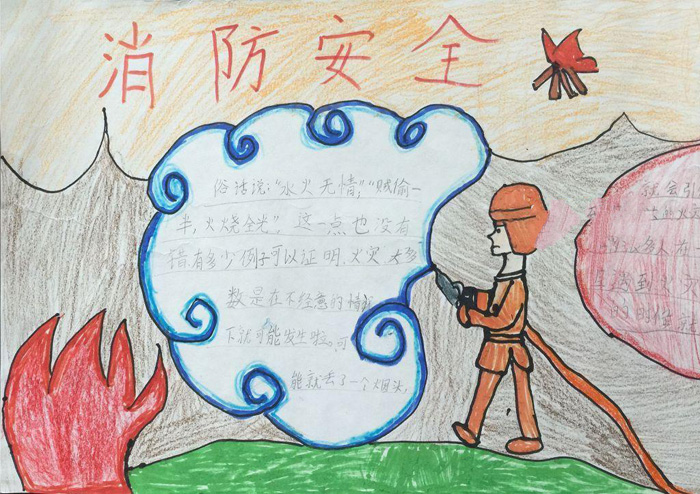 消防安全
俗话说:“水火无情”,“贼偷一
半,火烧全光”。这一点也没有
错.有多少例子可以证明.火灾大多
数是在不经意的情况
下就可能发生啦。可
能就去了一个烟头,
就会引
多人在
到火灾
的时候